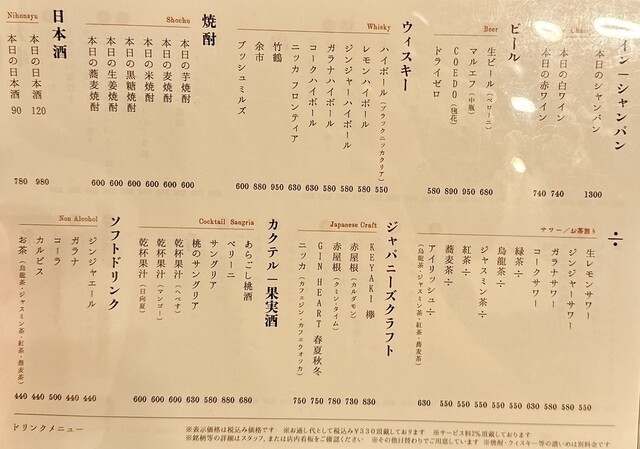 ワイン－シャンパン
本日のシャンパン 1300
本日の白ワイン 740
本日の赤ワイン 740
ビール
Beer
生ビール（ペローニ） 680
マルエフ（中瓶） 950
COEDO（毬花） 890
ドライゼロ 580
ウィスキー
Whisky
ハイボール（ブラックニッカクリア） 550
レモンハイボール 580
ジンジャーハイボール 580
ガラナハイボール 580
コークハイボール 630
ニッカ フロンティア 630
竹鶴 950
余市 880
ブッシュミルズ 600
焼酎
Shochu
本日の芋焼酎 600
本日の麦焼酎 600
本日の米焼酎 600
本日の黒糖焼酎 600
本日の生姜焼酎 600
本日の蕎麦焼酎 600
日本酒
Nihonsyu
本日の日本酒 120 980
本日の日本酒 90 780
÷
サワー／お茶割り
生レモンサワー 550
ジンジャーサワー 580
ガラナサワー 580
コークサワー 630
緑茶÷ 550
烏龍茶÷ 550
ジャスミン茶÷ 550
紅茶÷ 550
蕎麦茶÷ 550
アイリッシュ÷ 630
（烏龍茶・ジャスミン茶・紅茶・蕎麦茶）
ジャパニーズクラフト
Japanese Craft
KEYAKI 欅 830
赤屋根（カルダモン） 730
赤屋根（クミン・タイム） 780
GIN HEART 春夏秋冬 750
ニッカ（カフェジン・カフェウオッカ） 750
カクテル－果実酒
Cocktail Sangria
あらごし桃酒 680
ベリーニ 880
サングリア 580
桃のサングリア 630
乾杯果汁（へべす） 600
乾杯果汁（マンゴー） 600
乾杯果汁（日向夏） 600
ソフトドリンク
Non Alcohol
ジンジャエール 440
ガラナ 440
コーラ 500
カルピス 440
お茶（烏龍茶・ジャスミン茶・紅茶・蕎麦茶） 440
ドリンクメニュー
※表示価格は税込み価格です ※お通し代として税込み￥330頂戴しております ※サービス料3％頂戴しております
※銘柄等の詳細はスタッフ、または店内看板をご確認ください ※その他日替わりでご用意しています ※焼酎・ウイスキー等の濃いめは別料金です